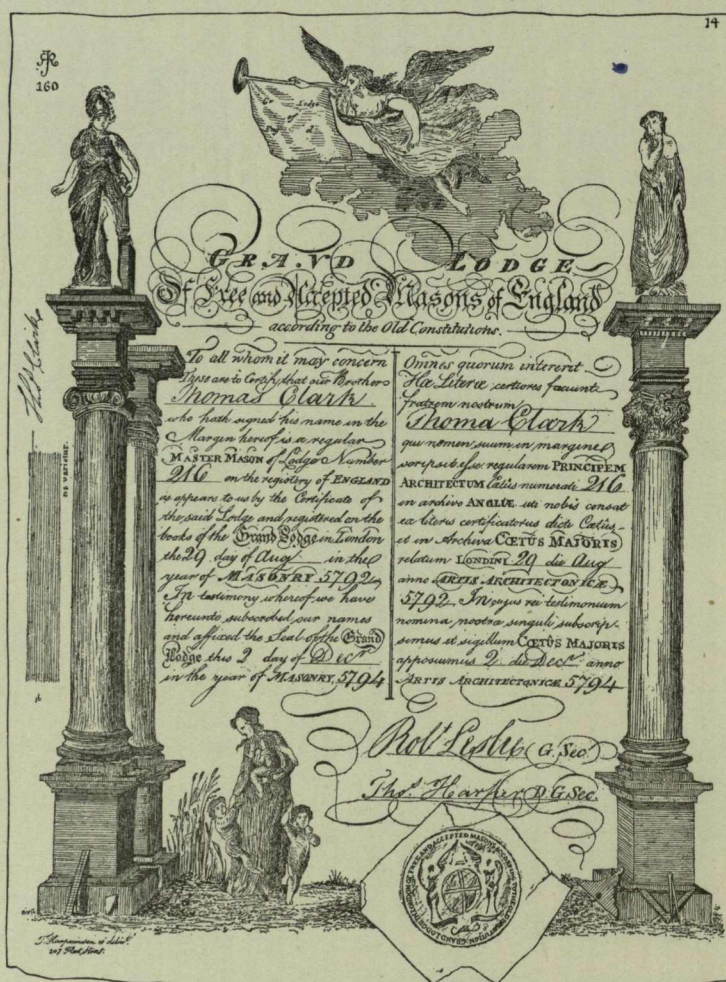 14
160
Go Lodge of
GRAND LODGE
Of Free and Accepted Masons of England
according to the Old Constitutions.
Thos Clark
NE VARIETUR.
To all whom it may concern
These are to Certify that our Brother
Thomas Clark
who hath signed his name in the
Margin hereof is a regular
MASTER MASON of Lodge Number
216 on the registry of ENGLAND
as appears to us by the Certificate of
the said Lodge and registered on the
books of the Grand Lodge in London
the 29 day of Aug in the
year of MASONRY 5792
In testimony whereof we have
hereunto subscribed our names
and affixed the Seal of the Grand
Lodge this 2 day of Decr
in the year of MASONRY, 5794
Omnes quorum intererit
Hæ Literæ certiores faciunt
fratrem nostrum
Thoma Clark
qui nomen suum in margine
scripsit esse regularem PRINCIPEM
ARCHITECTUM Cætus numerati 216
in archivo ANGLIÆ uti nobis constat
ea literis certificatorus dicti Cætus
et in Archiva CŒTUS MAJORIS
relatum LONDINI 29 die Aug
anno ARTIS ARCHITECTONICÆ
5792. In cujus rei testimonium
nomina nostra singuli subscrip-
simus et sigillum CŒTUS MAJORIS
apposuimus 2 die Decr anno
ARTIS ARCHITECTONICÆ 5794
Robt Leslie G. Sec.
Thos. Harper D G Sec.
GRAND LODGE OF FREE AND ACCEPTED MASONS
207 Fleet Street.